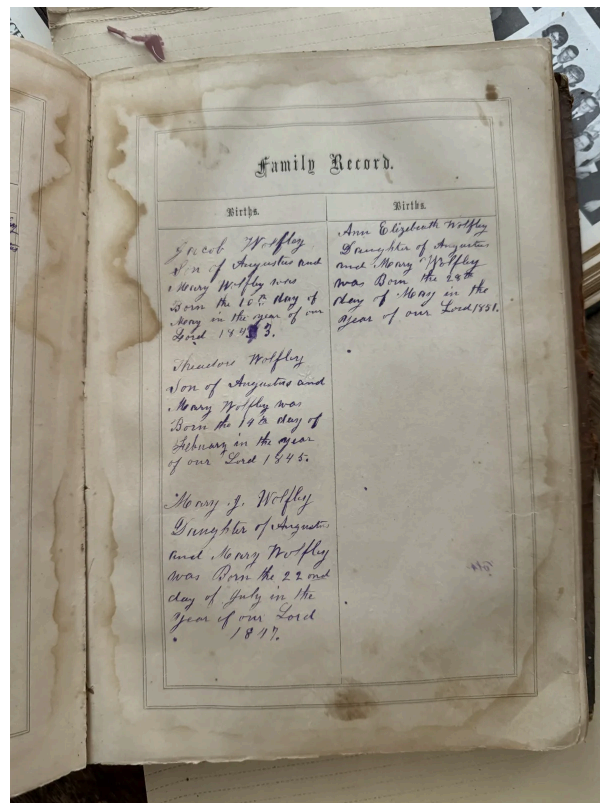 Family Record.
Births.
Jacob Wolfley
Son of Augustus and
Mary Wolfley was
Born the 10th day of
May in the year of our
Lord 1843.
Theodore Wolfley
Son of Augustus and
Mary Wolfley was
Born the 19th day of
Febuary in the year
of our Lord 1845.
Mary J. Wolfley
Daughter of Augustus
and Mary Wolfley
was Born the 22ond
day of July in the
Year of our Lord
1847.
Births.
Ann Elizebeth Wolfley
Daughter of Augustus
and Mary Wolfley
was Born the 28th
day of May in the
year of our Lord 1851.